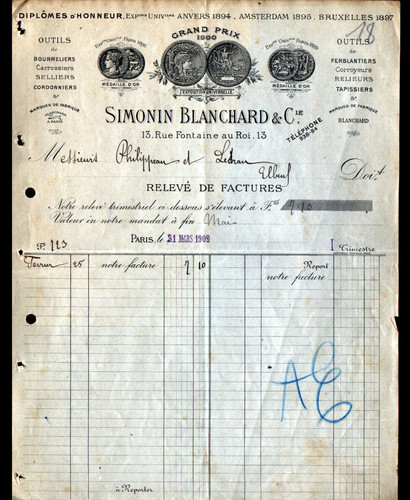 DIPLÔMES D'HONNEUR, EXPons UNIVlles ANVERS 1894, AMSTERDAM 1895, BRUXELLES 1897
18
GRAND PRIX
1900
OUTILS
de
BOURRELIERS
Carrossiers
SELLIERS
CORDONNIERS
&
MARQUES DE FABRIQUE
MÉDAILLE D'OR
EXPOSITION UNIVERSELLE
MÉDAILLE D'OR
OUTILS
de
FERBLANTIERS
Corroyeurs
RELIEURS
TAPISSIERS
&
MARQUES DE FABRIQUE
BLANCHARD
SIMONIN BLANCHARD & CIE
13, Rue Fontaine au Roi, 13
TÉLÉPHONE
Messieurs Philippeau et
Elbeuf
Doivt
RELEVÉ DE FACTURES
Notre relevé trimestriel ci-dessous s'élevant à Frs 7,10
Valeur en notre mandat à fin Mai
PARIS, le 31 MARS 1909
Fo 123
1 Trimestre
Fevrier 25 notre facture 7 10 Report
notre facture
AE
à Reporter